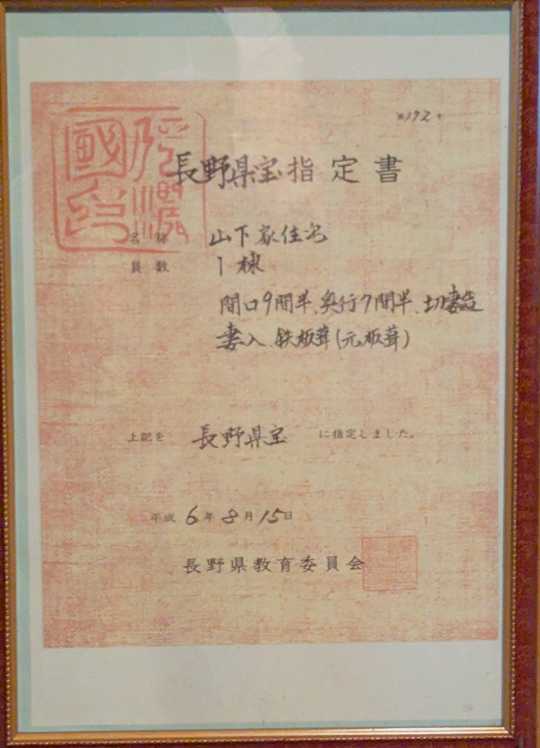 第192号
長野県宝指定書
名称 山下家住宅
員数 1棟
間口9間半、奥行7間半、切妻造
妻入、鉄板葺(元板葺)
上記を 長野県宝 に指定しました。
平成6年8月15日
長野県教育委員会